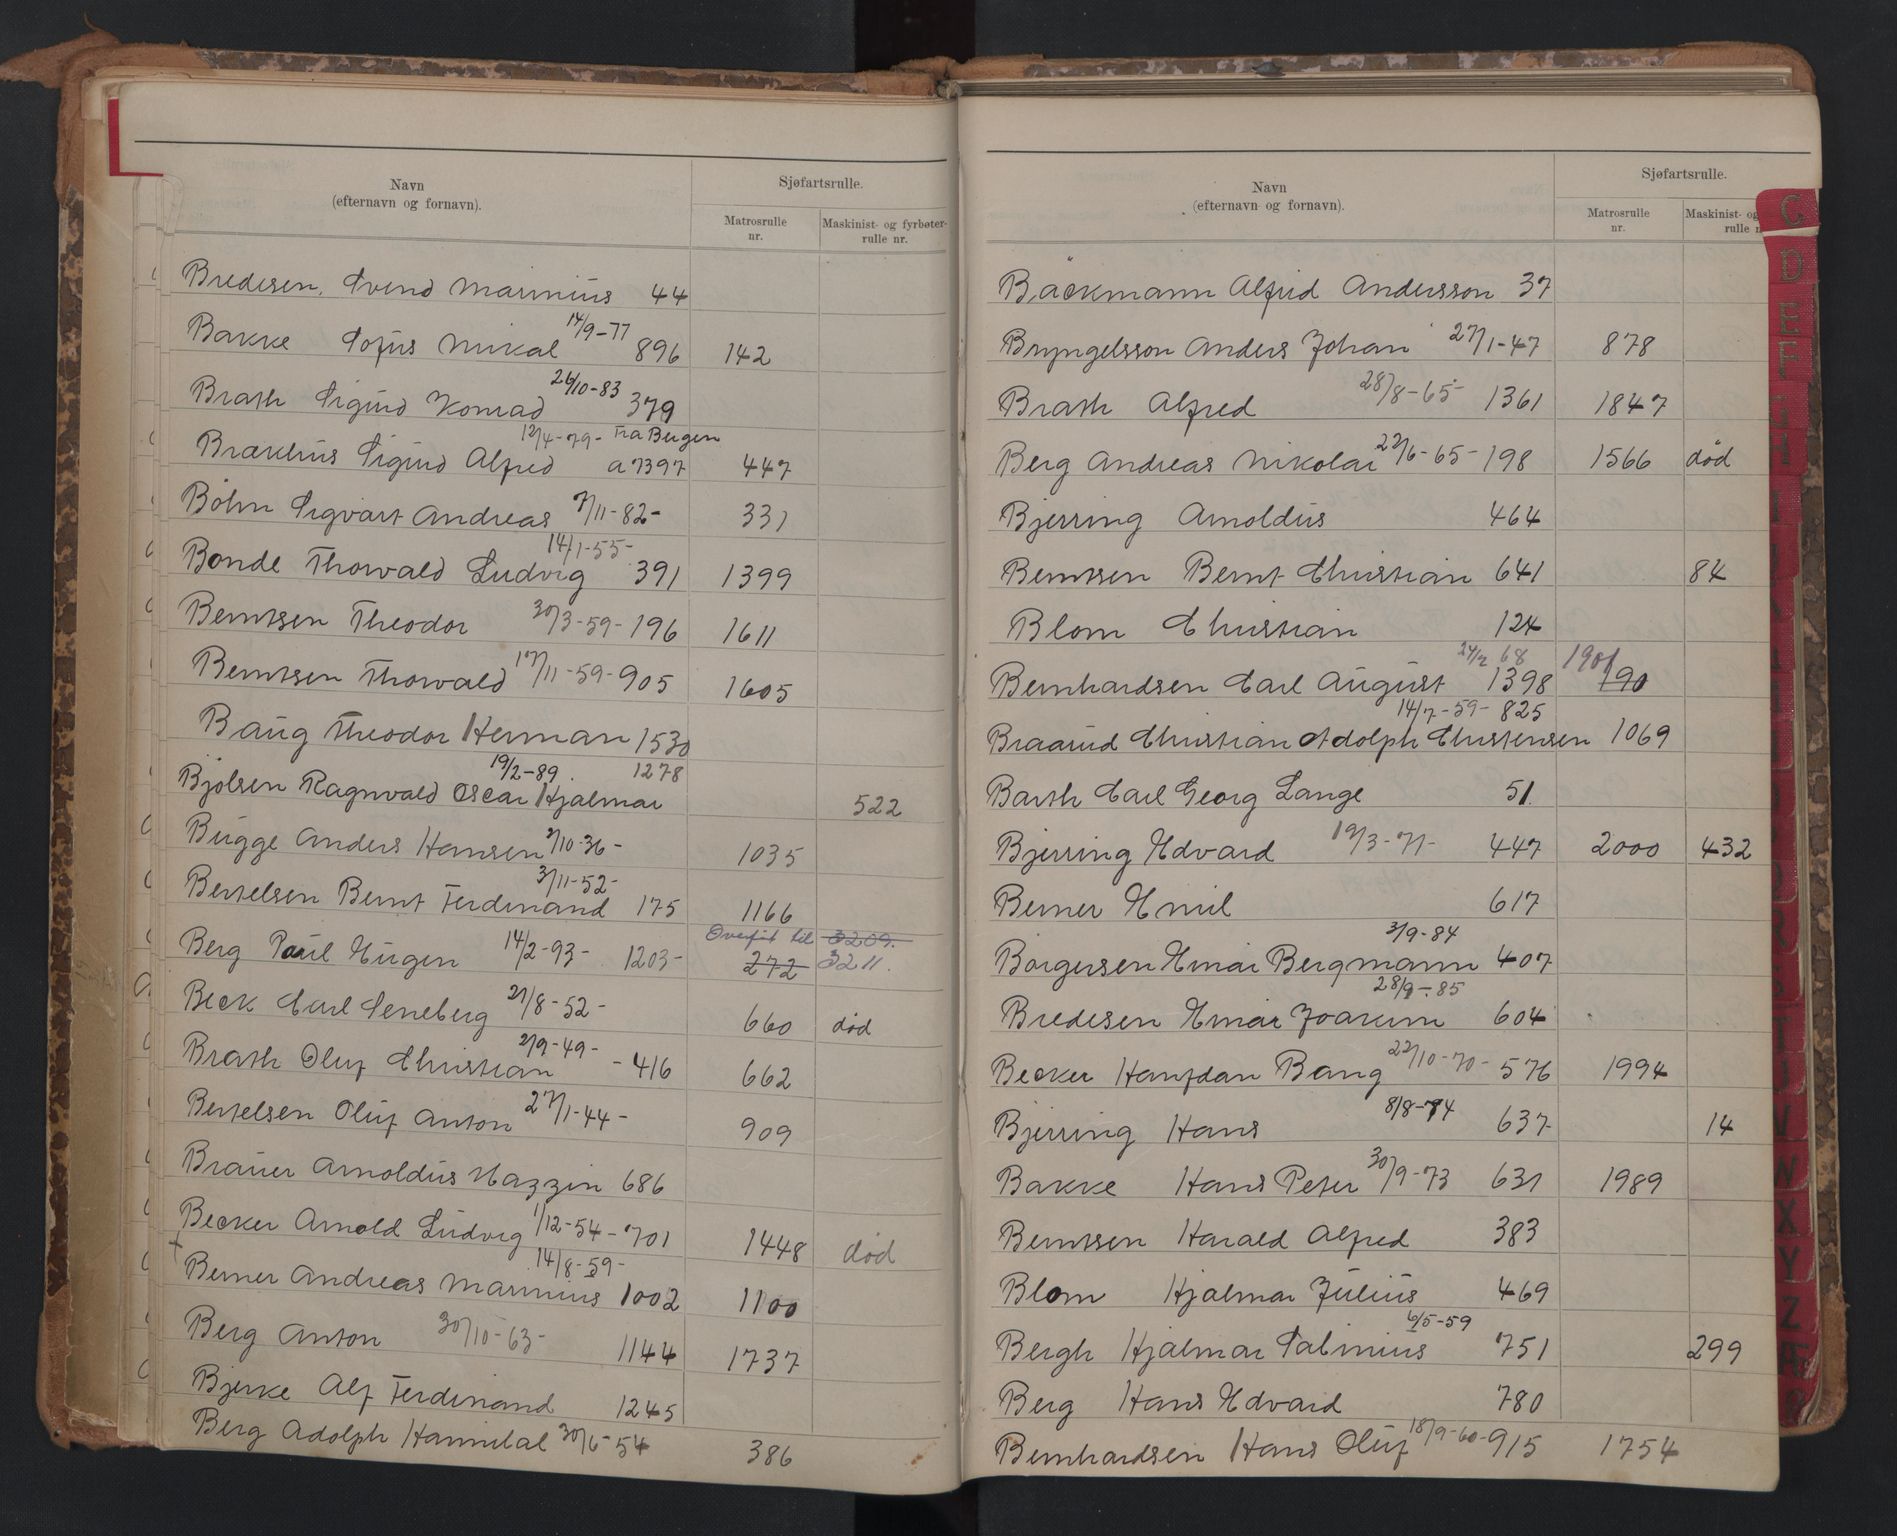 Navn
(efternavn og fornavn).
Sjøfartsrulle.
Matrosrulle
nr.
Maskinist- og fyrbøter-
rulle nr.
Bredesen, Svend Marinius 44
Bakke Sofus Mikal 14/9-77 896 142
Brath Sigurd Konrad 26/10-83 379
Brækhus Sigurd Alfred 12/4-79- Fra Bergen a 7397 447
Böhn Sigvart Andreas 7/11-82- 331
Bonde Thorvald Ludvig 14/1-55- 391 1399
Berntsen Theodor 30/3-59- 196 1611
Berntsen Thorvald 17/11-59- 905 1605
Baug Theodor Herman 1530
Bjølsen Ragnvald Oscar Hjalmar 19/2-89. 1278 522
Bugge Anders Hansen 2/10-36- 1035
Bertelsen Bernt Ferdinand 3/11-52- 175 1166
Berg Paul Eugen 14/2-93- 1203- 272 Overført til 3209. 3211.
Beck Carl Seneberg 21/8-52- 660 død
Brath Oluf Christian 2/9-49- - 416 662
Bertelsen Oluf Anton 27/1-44- 909
Brauer Arnoldus Nazzin 686
Becker Arnold Ludvig 1/12-54- 701 1448 død
+
Berner Andreas Marinius 14/8-59- 1002 1100
Berg Anton 30/10-63- 1144 1737
Bjerke Alf Ferdinand 1245
Berg Adolph Hannibal 30/6-54 386
Navn
(efternavn og fornavn).
Sjøfartsrulle.
Matrosrulle
nr.
Maskinist- og
rulle n
Bäckmann Alfrid Andersson 37
Bryngelsson Anders Johan 27/1-47 878
Brath Alfred 28/8-65- 1361 1847
Berg Andreas Nikolai 22/6-65- 198 1566 død
Bjerring Arnoldus 464
Berntsen Bernt Christian 641 84
Blom Christian 124
Bernhardsen Carl August 24/2 68 1398 1901 190
Braarud Christian Adolph Christensen 14/7-59- 825 1069
Barth Carl Georg Lange 51.
Bjerring Edvard 19/3-71- 447 2000 432
Berner Emil 617
Borgersen Einar Bergmann 3/9-84 407
Bredesen Einar Joakim 28/9-85 604
Becker Hanfdan Bang 22/10-70- 576 1994
Bjerring Hans 8/8-74 637 14
Bakke Hans Peter 30/9-73 631 1989
Berntsen Harald Alfred 383
Blom Hjalmar Julius 469
Bergh Hjalmar Salinius 6/5-59 751 299
Berg Hans Edvard 780
Bernhardsen Hans Oluf 18/9-60- 915 1754
C
D
E
F
V
W
X
Y
Z
Æ